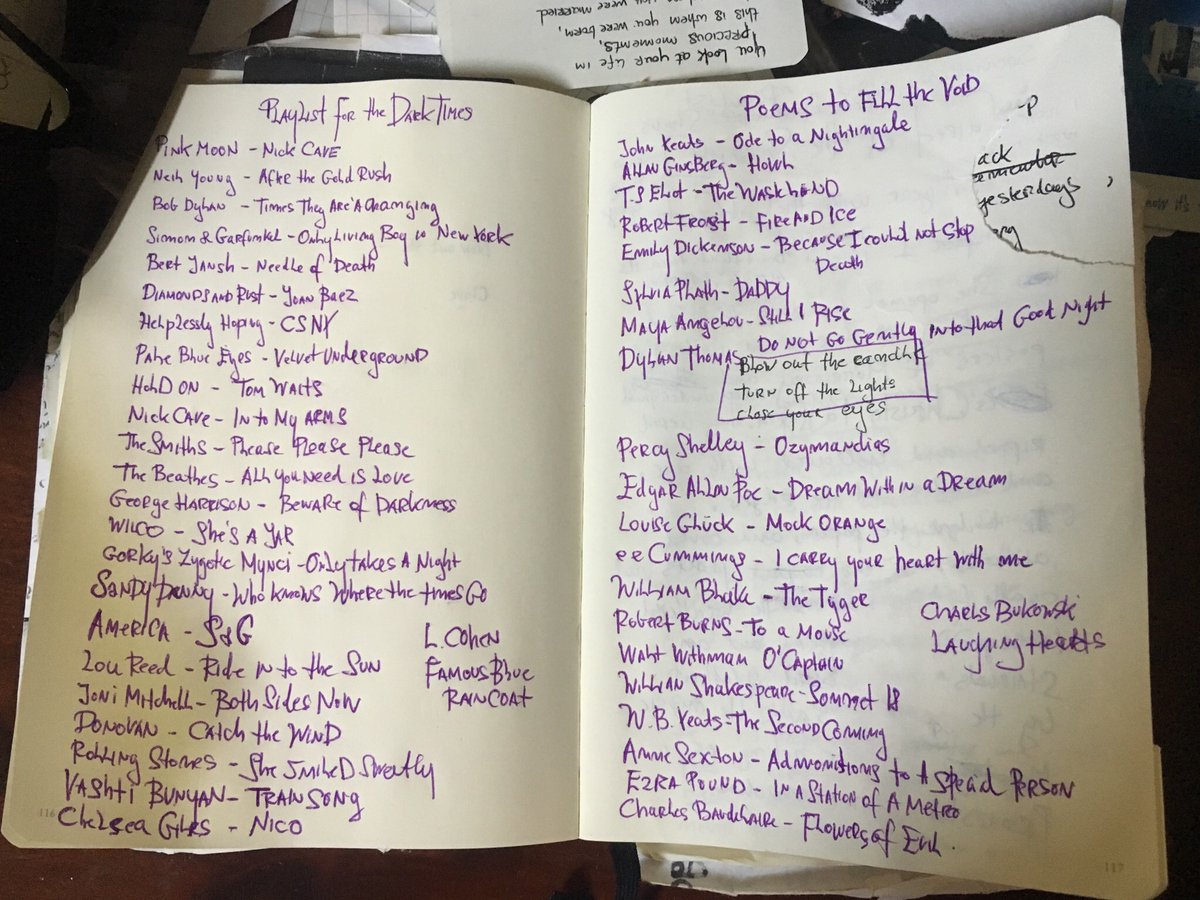 you look at your life in
precious moments,
this is when you were born,
you were married
PLAYLIST FOR the DARK TIMES
PINK MOON - NICK CAVE
Neil Young - AFTER the Gold RUSH
BOB DYLAN - TIMES THEY ARE A Changing
SIMON & GARFUNKEL - ONLY LIVING BOY in NEW YORK
BERT JANSH - Needle of Death
DIAMONDS AND RUST - JOAN BAEZ
Helplessly Hoping - CSNY
Pale Blue Eyes - VELVET UNDERGROUND
HOLD ON - TOM WAITS
NICK CAVE - INTO My ARMS
The SMITHS - PLEASE PLEASE PLEASE
The Beatles - ALL YOU NEED IS LOVE
GEORGE HARRISON - BEWARE of DARKNESS
WILCO - SHE'S A JAR
GORKY'S ZYGOTIC MYNCI - ONLY TAKES A NIGHT
SANDY DENNY - WHO KNOWS WHERE the times GO
AMERICA - S&G
LOU REED - RIDE INTO the SUN
JONI MITCHELL - BOTH SIDES NOW
DONOVAN - CATCH the WIND
ROLLING STONES - SHE SMILED SWEETLY
VASHTI BUNYAN - TRAIN SONG
Chelsea GIRLS - NICO
L. COHEN
FAMOUS BLUE
RAINCOAT
116
POEMS to FILL the VOID
John Keats - Ode to a Nightingale
ALLAN GINSBERG - HOWL
T.S Eliot - THE WASTELAND
ROBERT FROST - FIRE AND ICE
Emily Dickenson - BECAUSE I could NOT STOP
Death
SYLVIA PLATH - DADDY
MAYA Angelou - STILL I RISE
DYLAN THOMAS DO NOT GO Gently INTO that Good Night
Blow out the candle
TURN off the Lights
close your eyes
PERCY SHELLEY - OZYMANDIAS
EDGAR ALLAN POE - DREAM WITHIN a DREAM
LOUISE GLÜCK - MOCK ORANGE
ee CUMMINGS - I CARRY your heart with me
WILLIAM Blake - THE TYGER
ROBERT BURNS - To a MOUSE
Walt Withman O'Captain
WILLIAN Shakespeare - Sonnet 18
W.B. YEATS - THE SECOND COMING
ANNE SEXTON - ADMONITIONS to A SPECIAL PERSON
EZRA POUND - IN A STATION OF A METRO
CHARLES BAUDELAIRE - FLOWERS of EVIL.
CHARLS BUKOWSKI
LAUGHING HEARTS
117
-P
ack
yesterdays,